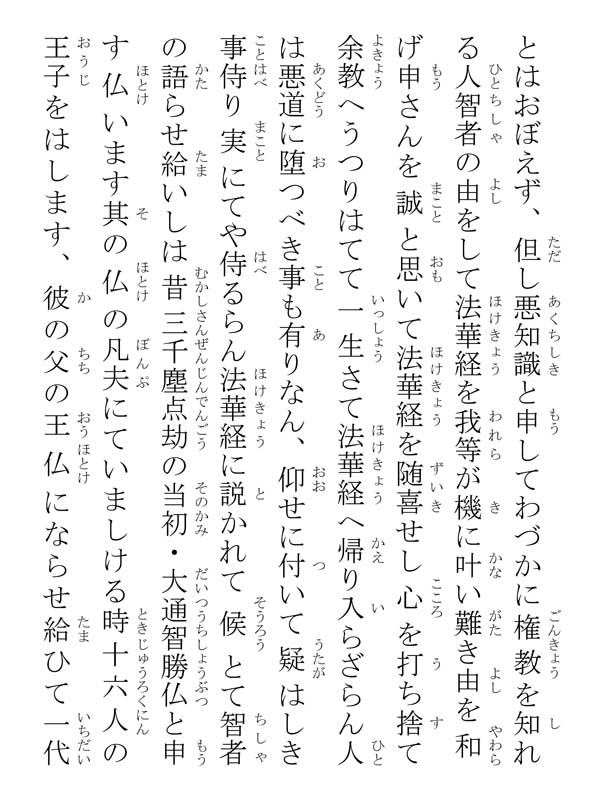 とはおぼえず、但し悪知識と申してわづかに権教を知れ
る人智者の由をして法華経を我等が機に叶い難き由を和
げ申さんを誠と思いて法華経を随喜せし心を打ち捨て
余教へうつりはてて一生さて法華経へ帰り入らざらん人
は悪道に堕つべき事も有りなん、仰せに付いて疑はしき
事侍り実にてや侍るらん法華経に説かれて候とて智者
の語らせ給いしは昔三千塵点劫の当初・大通智勝仏と申
す仏います其の仏の凡夫にていましける時十六人の
王子をはします、彼の父の王仏にならせ給ひて一代